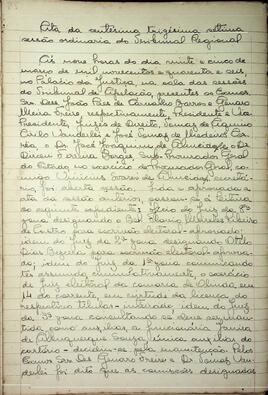 Ata da centésima trigésima sétima
sessão ordinaria do Tribunal Regional
Ás nove horas do dia vinte e cinco de
março de mil novecentos e quarenta e seis,
no Palacio da Justiça, na sala das sessões
do Tribunal de Apelação, presentes os Exmos.
Srs. Des. João Paes de Carvalho Barros e Genaro
Freire, respectivamente, Presidente e Vice-
Presidente, Juizes de Direito, Tomaz de Aquino
e José Tomaz de Medeiros Cor-
réa, o Dr. José Joaquim de Almeida, o Dr.
Borges, Sub-Procurador Geral
do Estado no exercicio de Procurador Geral, co-
migo Vinicius de secretá-
rio, foi aberta sessão. Lida e aprovada a
ata da sessão anterior, passou-se á leitura
do seguinte expediente: oficio do Juiz da 8ª
zona, designando o Bel.
de Castro para escrivão eleitoral - aprovado;
idem do Juiz da 2ª zona designando
Dias Bezerra para escrivão eleitoral - aprova-
do; idem do Juiz da 1ª zona comunicando
ter assumido cumulativamente, o exercicio
de Juiz eleitoral da comarca de Olinda, em
14 do corrente, em virtude da licença do
respectivo titular - inteirado; idem do Juiz
da 3ª zona consultando se deve ser man-
tida como auxiliar, a funcionária
de Albuquerque Souza, técnica auxiliar do
cartório - decidiu-se pela manutenção. Pelos
Exmos. Srs. Des. Genaro Freire e Dr. Tomaz
foi dito que as comissões designadas